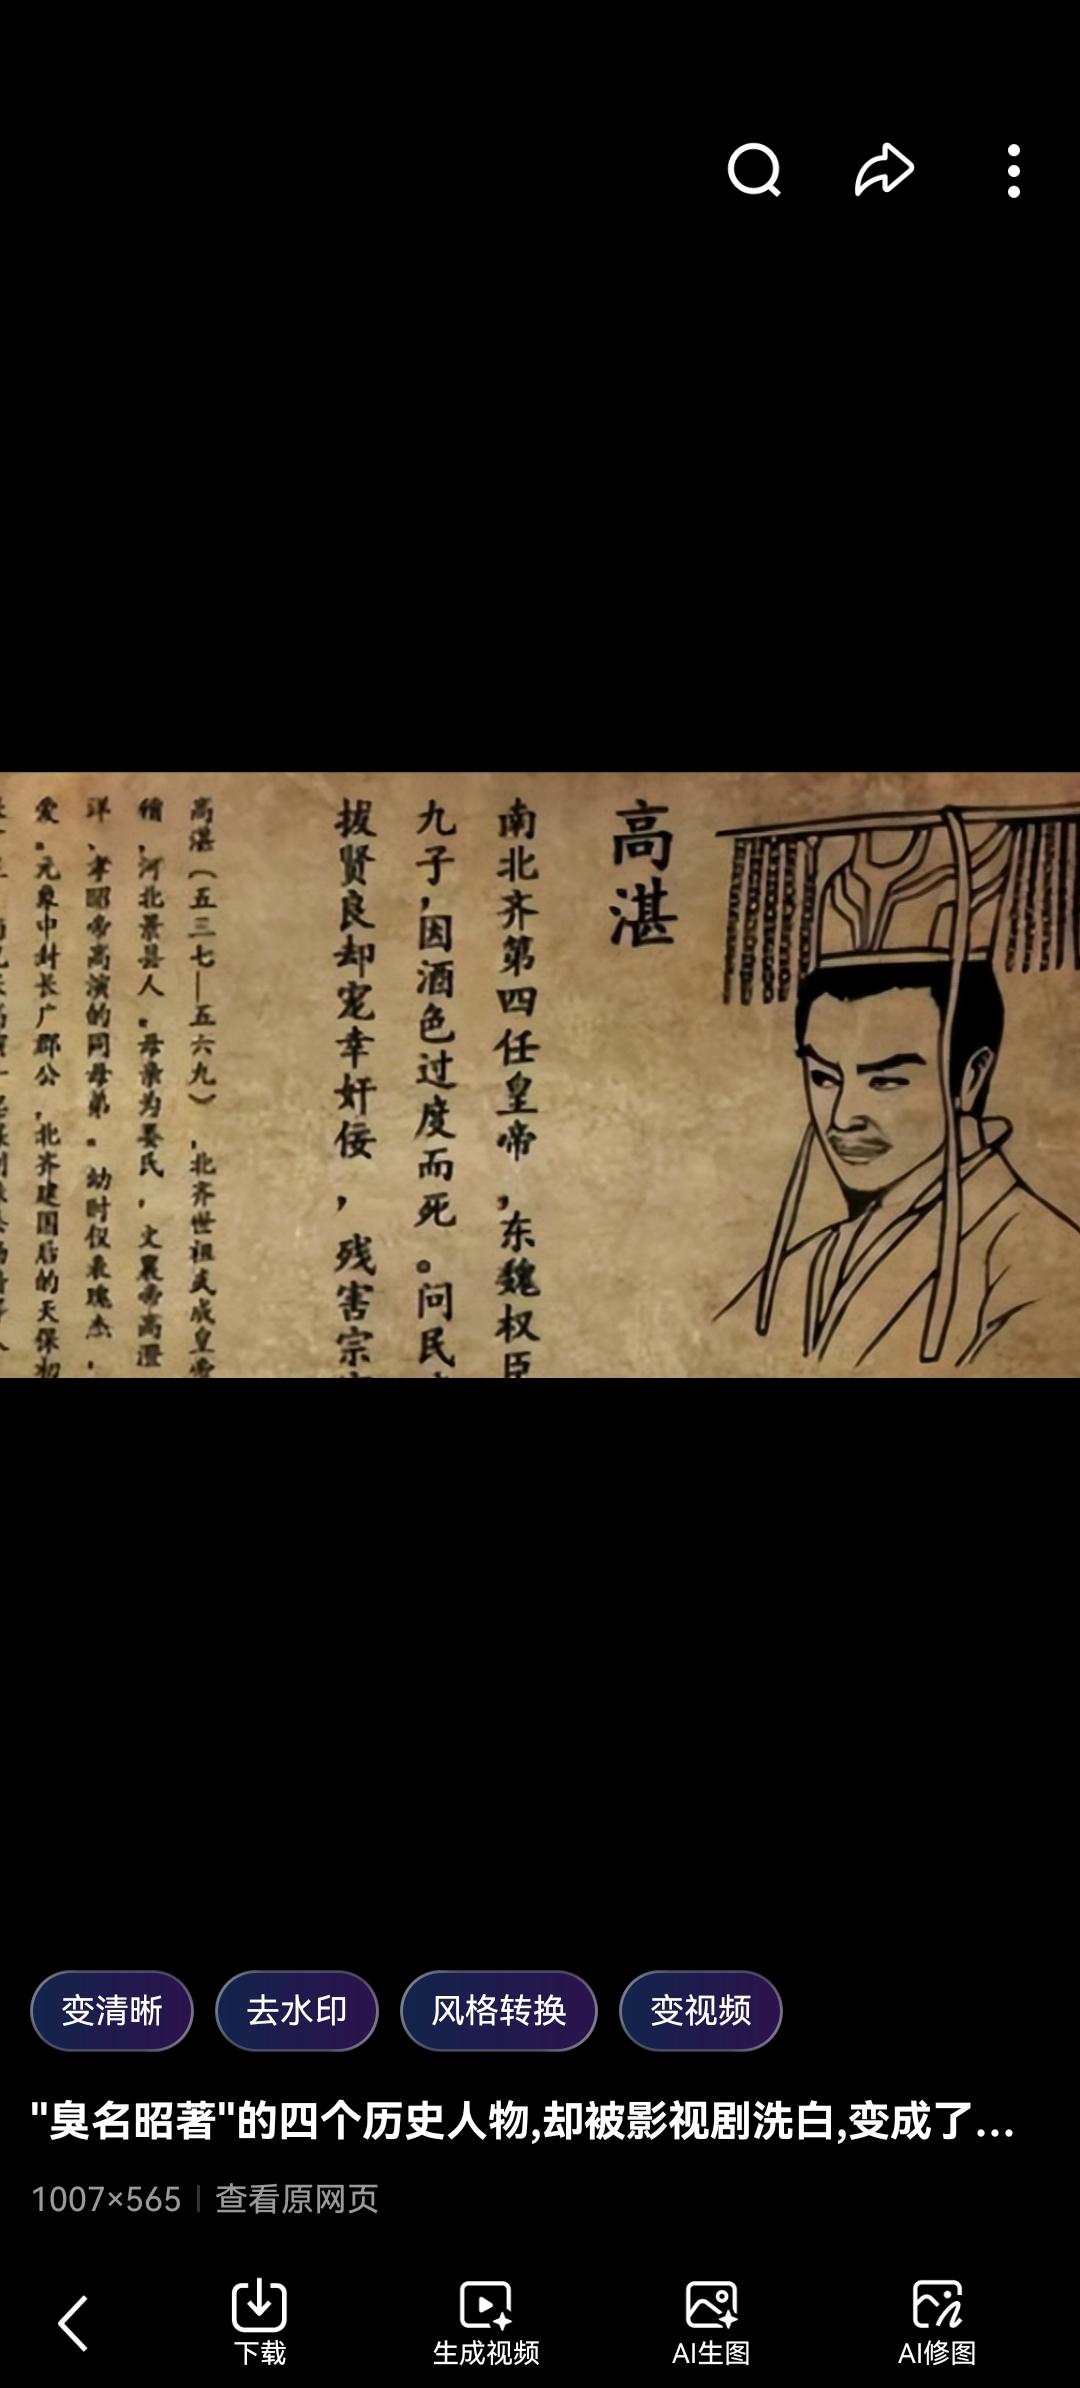 高湛
南北齐第四任皇帝,东魏权臣
九子,因酒色过度而死。问民
拔贤良却宠幸奸佞,残害宗
高湛(五三七—五六九),北齐世祖武成皇帝
稽,河北景县人。母亲为娄氏,文襄帝高澄
洋、孝昭帝高演的同母弟。幼时仪表瑰杰,
爱。元象中封长广郡公,北齐建国后的天保初
变清晰
去水印
风格转换
变视频
"臭名昭著"的四个历史人物,却被影视剧洗白,变成了...
1007×565 | 查看原网页
下载
生成视频
AI生图
AI修图